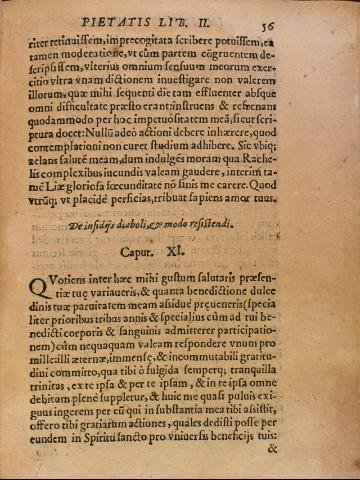 PIETATIS LIB. II. 56
riter retinuissem, imprecogitata scribere potuissem, ea
tamen moderatione, vt cùm partem cōgruentem de-
scripsissem, vlterius omnium sensuum meorum exer-
citio vltra vnam dictionem inuestigare non valerem
illorum, quæ mihi sequenti die tam effluenter absque
omni difficultate præsto erant: instruens & refrenans
quodammodo per hoc impetuositatem meā, sicut scri-
ptura docet: Nullū adeò actioni debere inhærere, quod
contemplationi non curet studium adhibere. Sic vbiq;
zelans salutē meam, dum indulgēs moram qua Rache-
lis complexibus iucundis valeam gaudere, interim ta-
mē Liæ gloriosa fœcunditate nō sinis me carere. Quod
vtrūq; vt placidè perficias, tribuat sapiens amor tuus.
De insidijs diaboli, & modo resistendi.
Caput. XI.
QVotiens inter hæc mihi gustum salutaris præsen-
tiæ tuę variaueris, & quanta benedictione dulce
dinis tuæ paruitatem meam assiduè pręueneris (specia
liter prioribus tribus annis & specialius cùm ad tui be-
nedicti corporis & sanguinis admitterer participatio-
nem) cùm nequaquam valeam respondere vnum pro
mille: illi æternæ, immensę, & incommutabili gratitu-
dini committo, qua tibi ò fulgida semperq; tranquilla
trinitas, ex te ipsa & per te ipsam, & in te ipsa omne
debitum plenè suppletur, & huic me quasi puluis exi-
guus ingerens per eū qui in substantia mea tibi assistit,
offero tibi gratiarum actiones, quales dedisti posse per
eundem in Spiritu sancto pro vniuersis beneficijs tuis:
&